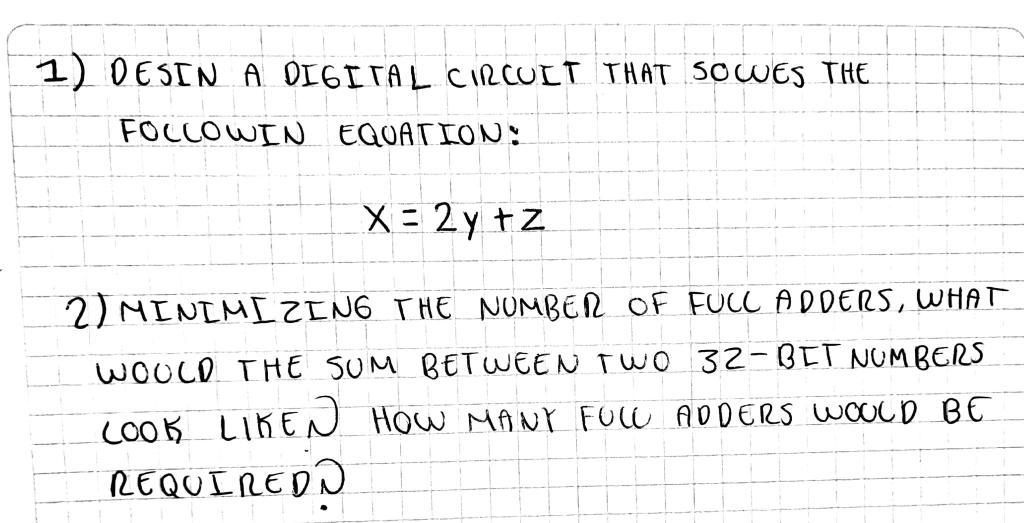 1) DESIN A DIGITAL CIRCUIT THAT SOLVES THE
FOLLOWIN EQUATION:
X = 2y + z
2) MINIMIZING THE NUMBER OF FULL ADDERS, WHAT
WOULD THE SUM BETWEEN TWO 32-BIT NUMBERS
LOOK LIKE? HOW MANY FULL ADDERS WOULD BE
REQUIRED?